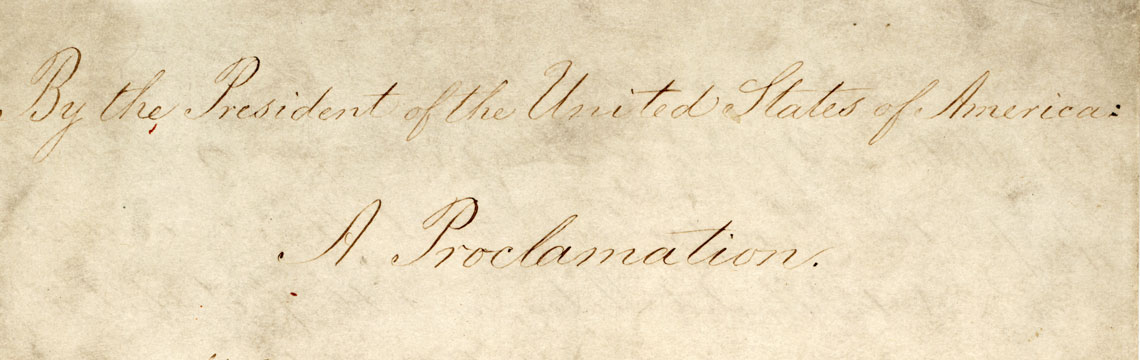 By the President of the United States of America:
A Proclamation.